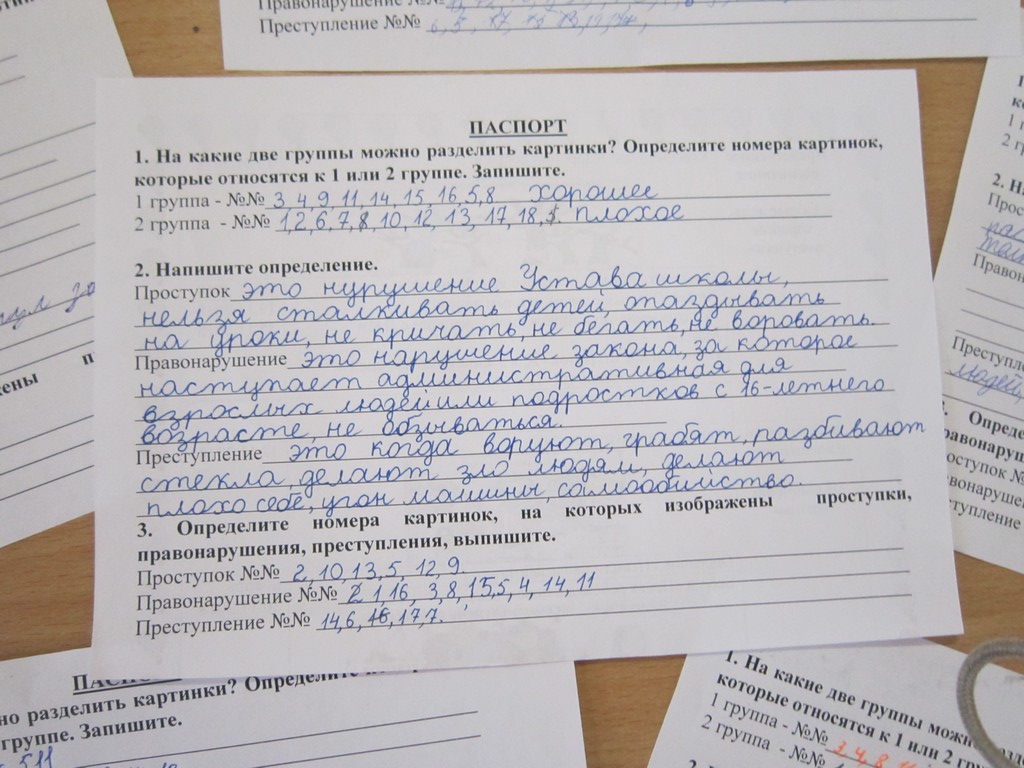 Правонарушение №№
Преступление №№
ПАСПОРТ
1. На какие две группы можно разделить картинки? Определите номера картинок,
которые относятся к 1 или 2 группе. Запишите.
1 группа - №№ 3, 4, 9, 11, 14, 15, 16, 5, 8 хорошее
2 группа - №№ 1, 2, 6, 7, 8, 10, 12, 13, 17, 18, плохое
2. Напишите определение.
Проступок это нурушение Устава школы,
нельзя сталкивать детей, опаздывать
на уроки, не кричать, не бегать, не воровать.
Правонарушение это нарушение закона, за которое
наступает административная для
взрослых людей или подростков с 16-летнего
возрасте, не обзываться.
Преступление это когда воруют, грабят, разбивают
стекла, делают зло людям, делают
плохо себе, угон машины, самообийство.
3. Определите номера картинок, на которых изображены проступки,
правонарушения, преступления, выпишите.
Проступок №№ 2, 10, 13, 5, 12, 9.
Правонарушение №№ 2, 1, 16, 3, 8, 15, 5, 4, 14, 11
Преступление №№ 14, 6, 18, 17, 7.
но разделить картинки?
группе. Запишите.
511
1. На какие две группы
которые относятся к 1 или 2
1 группа - №№ 3, 4, 8
2 группа - №№